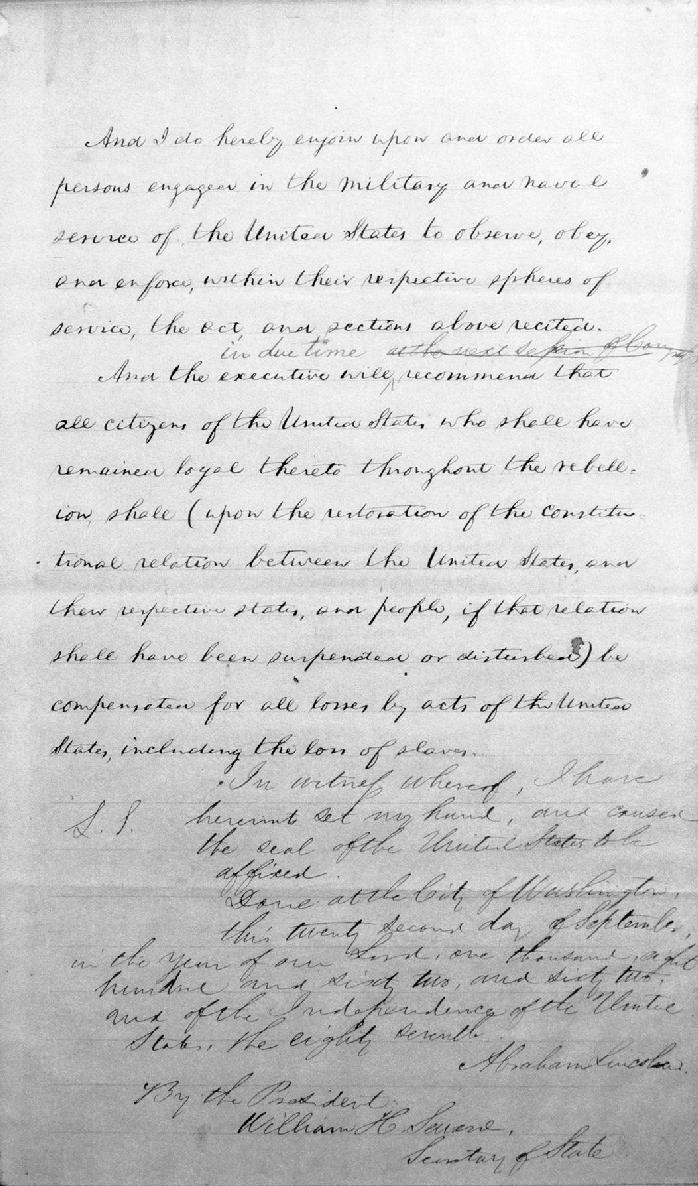 And I do hereby enjoin upon and order all
persons engaged in the military and naval
service of the United States to observe, obey,
and enforce, within their respective spheres of
service, the act, and sections above recited.
in due time at the next session of Congress
And the executive will, recommend that
all citizens of the United States who shall have
remained loyal thereto throughout the rebell-
ion, shall (upon the restoration of the constitu-
tional relation between the United States, and
their respective states, and people, if that relation
shall have been suspended or disturbed) be
compensated for all losses by acts of the United
States, including the loss of slaves.
In witness whereof, I have
L. S. hereunto set my hand, and caused
the seal of the United States to be
affixed.
Done at the City of Washington,
this twenty second day of September,
in the year of our Lord, one thousand, eight
hundred and sixty two, and sixty two,
and of the Independence of the United
States, the eighty seventh.
Abraham Lincoln.
By the President:
William H. Seward,
Secretary of State